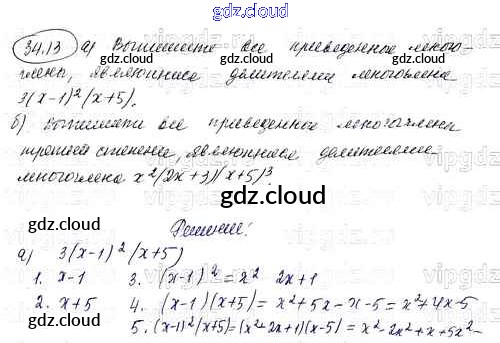 gdz.cloud
gdz.cloud
34.13 а) Выпишите все приведенные много-
члены, являющиеся делителями многочлена
3(x-1)²(x+5).
б) Выпишите все приведенные многочлены
третьей степени, являющиеся делителями
многочлена x²(2x+3)(x+5)³.
gdz.cloud
gdz.cloud
Решение:
а) 3(x-1)²(x+5)
gdz.cloud
1. x-1 3. (x-1)² = x² 2x+1
2. x+5 4. (x-1)(x+5) = x²+5x-x-5 = x²+4x-5
5. (x-1)²(x+5)=(x²+2x+1)(x-5) = x²-2x²+x+5x²-
gdz.cloud
gdz.cloud